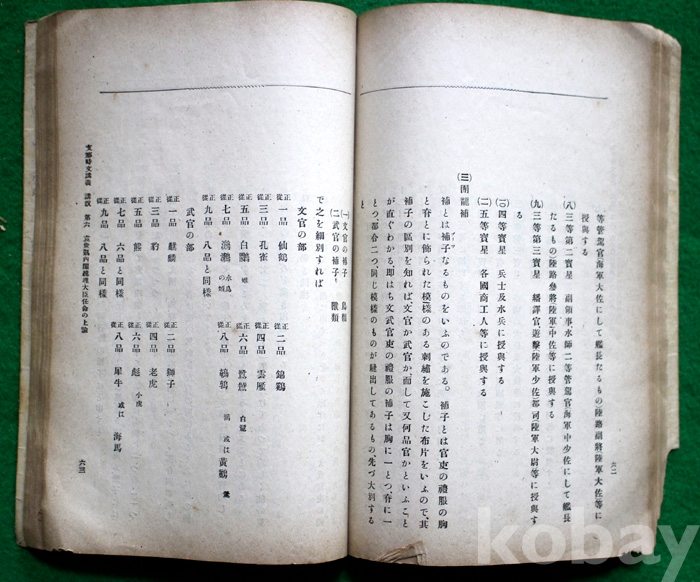 等管駕官海軍大佐にして艦長たるもの陸路副將陸軍大佐等に
授與する
(八)三等第二寶星 副領事水師二等管駕官海軍中少佐にして艦長
たるもの陸路參將陸軍中佐等に授與する
(九)三等第三寶星 繙譯官遊擊陸軍少佐都司陸軍大尉等に授與す
る
(一〇)四等寶星 兵士及水兵に授與する
(一一)五等寶星 各國商工人等に授與する
(三)團龍補
補とは補子なるものをいふのである。補子とは官吏の禮服の胸
と脊とに飾られた模樣のある刺繡を施こした布片をいふので、其
補子の區別を知れば、文官か武官か、而して又何品官かといふこと
が直ぐわかる即はち文武官吏の禮服の補子は胸に一とつ、脊に一
とつ、都合二つ同じ模樣のものが縫出してあるもの、先づ大別する
と
六二
(一)文官の補子 鳥類
(二)武官の補子 獸類
で之を細別すれば
文官の部
正從一品 仙鶴 正從二品 錦鷄
正從三品 孔雀 正從四品 雲雁
正從五品 白鷴 雉 正從六品 鷺鷥 白鷺
正從七品 鸂鶒 水鳥の類 正從八品 鵪鶉 鶉 或は黃鸝 鶯
正從九品 八品と同樣
武官の部
正從一品 麒麟 正從二品 獅子
正從三品 豹 正從四品 老虎
正從五品 熊 正從六品 彪 小虎
正從七品 六品と同樣 正從八品 犀牛 或は 海馬
正從九品 八品と同樣
支那時文講義 講說 第六 袁世凱內閣總理大臣任命の上諭
六三
kobay